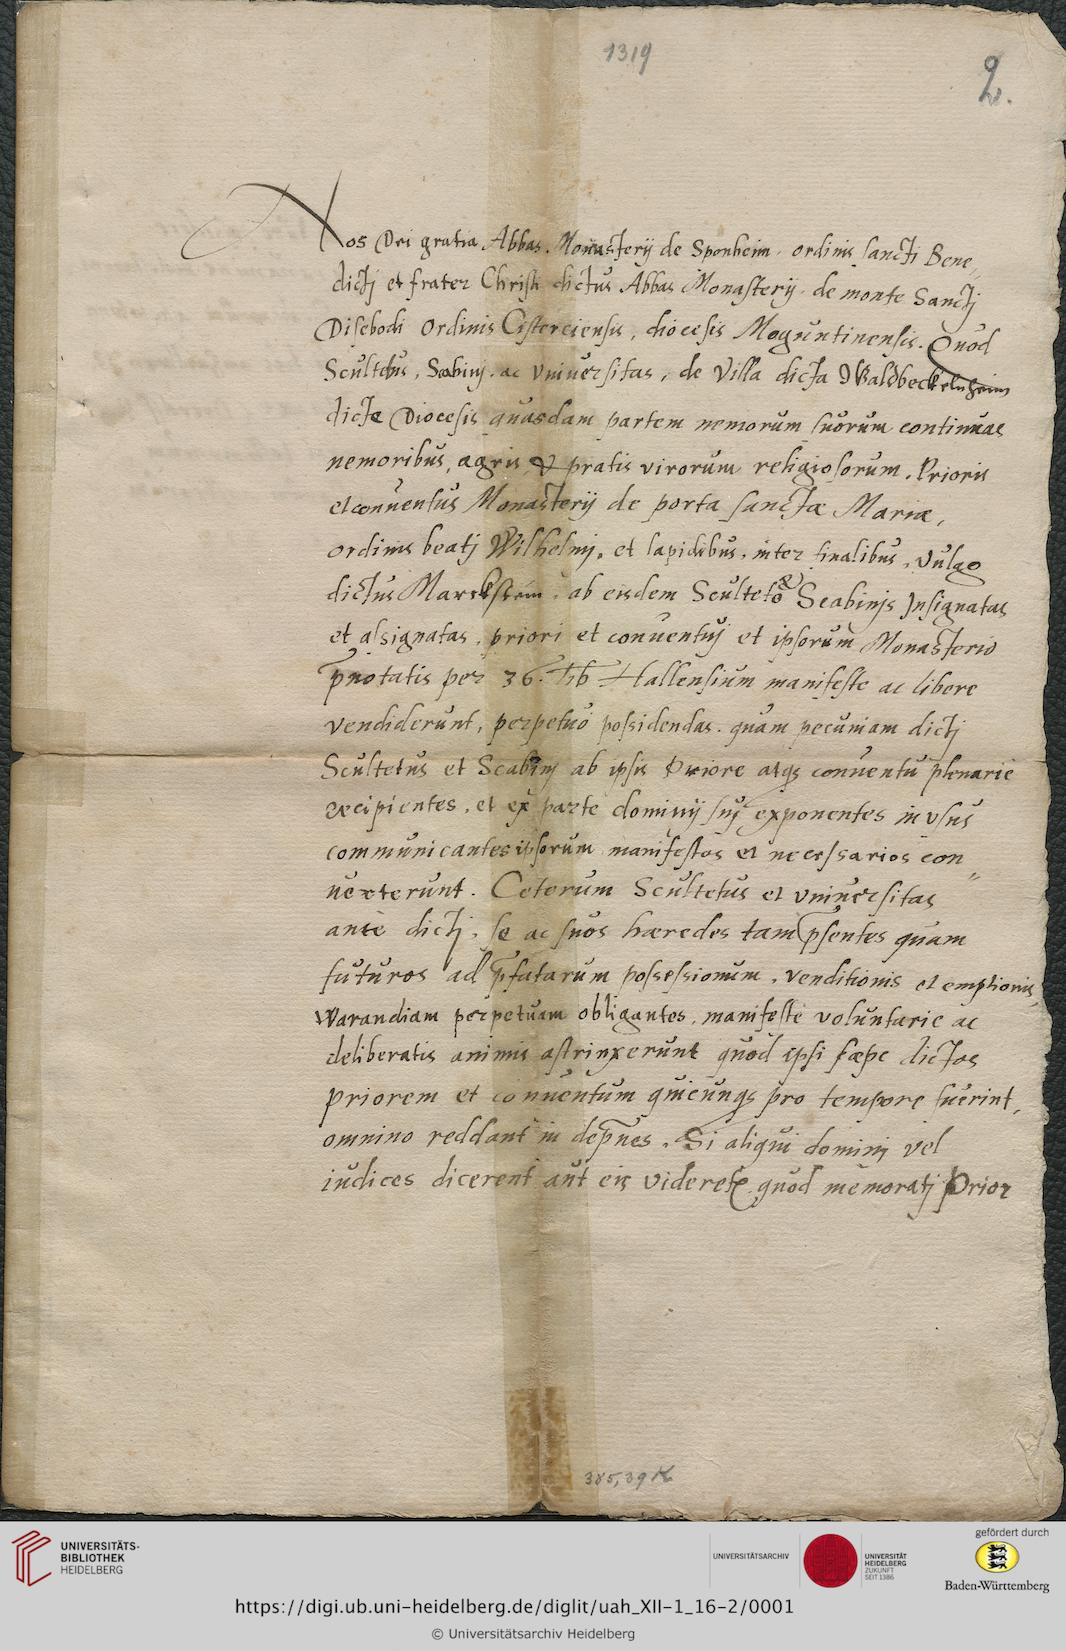 1319
2.
Nos Dei gratia Abbas Monasterij de Sponheim ordinis sancti Bene„
dictj et frater Christi dictus Abbas Monasterij de monte Sanctj
Disebodi Ordinis Cisterciensis, diocesis Moguntinensis. Quod
Scultetus, Scabinj ac Vniuersitas, de Villa dicta Waldbeckelnheim
dicte Diocesis quasdam partem nemorum suorum continuas
nemoribus, agris & pratis virorum religiosorum, Prioris
et conuentus Monasterij de porta sanctæ Mariæ,
ordinis beatj Wilhelmj, et lapidibus, inter finalibus, vulgo
dictus Marckstein, ab eisdem Sculteto & Scabinis Jnsignatas
et assignatas, priori et conuentuj et ipsorum Monasterio
pnotatis per 36. lib Hallensium manifeste ac libere
vendiderunt, perpetuo possidendas. quam pecuniam dictj
Scultetus et Scabinj ab ipsis Priore atqs conuentu plenarie
recipientes, et ex parte dominij suj exponentes in vsus
communicantes ipsorum manifestos et necessarios con„
uexterunt. Ceterum Scultetus et vniuersitas
ante dictj, se ac suos hæredes tam psentes quam
futuros ad pfatarum possessionum, venditionis et emptionis
Warandiam perpetuam obligantes, manifeste voluntarie ac
deliberatis animis astrinxerunt quod ipsi sæpe dictos
priorem et conuentum quicunqs pro tempore fuerint,
omnino reddant indepnes. Si aliqui dominj vel
iudices dicerent aut eis videret quod memoratj Prior
385,39 K
UNIVERSITÄTS-
BIBLIOTHEK
HEIDELBERG
UNIVERSITÄTSARCHIV
UNIVERSITÄT
HEIDELBERG
ZUKUNFT
SEIT 1386
gefördert durch
Baden-Württemberg
https://digi.ub.uni-heidelberg.de/diglit/uah_XII-1_16-2/0001
© Universitätsarchiv Heidelberg